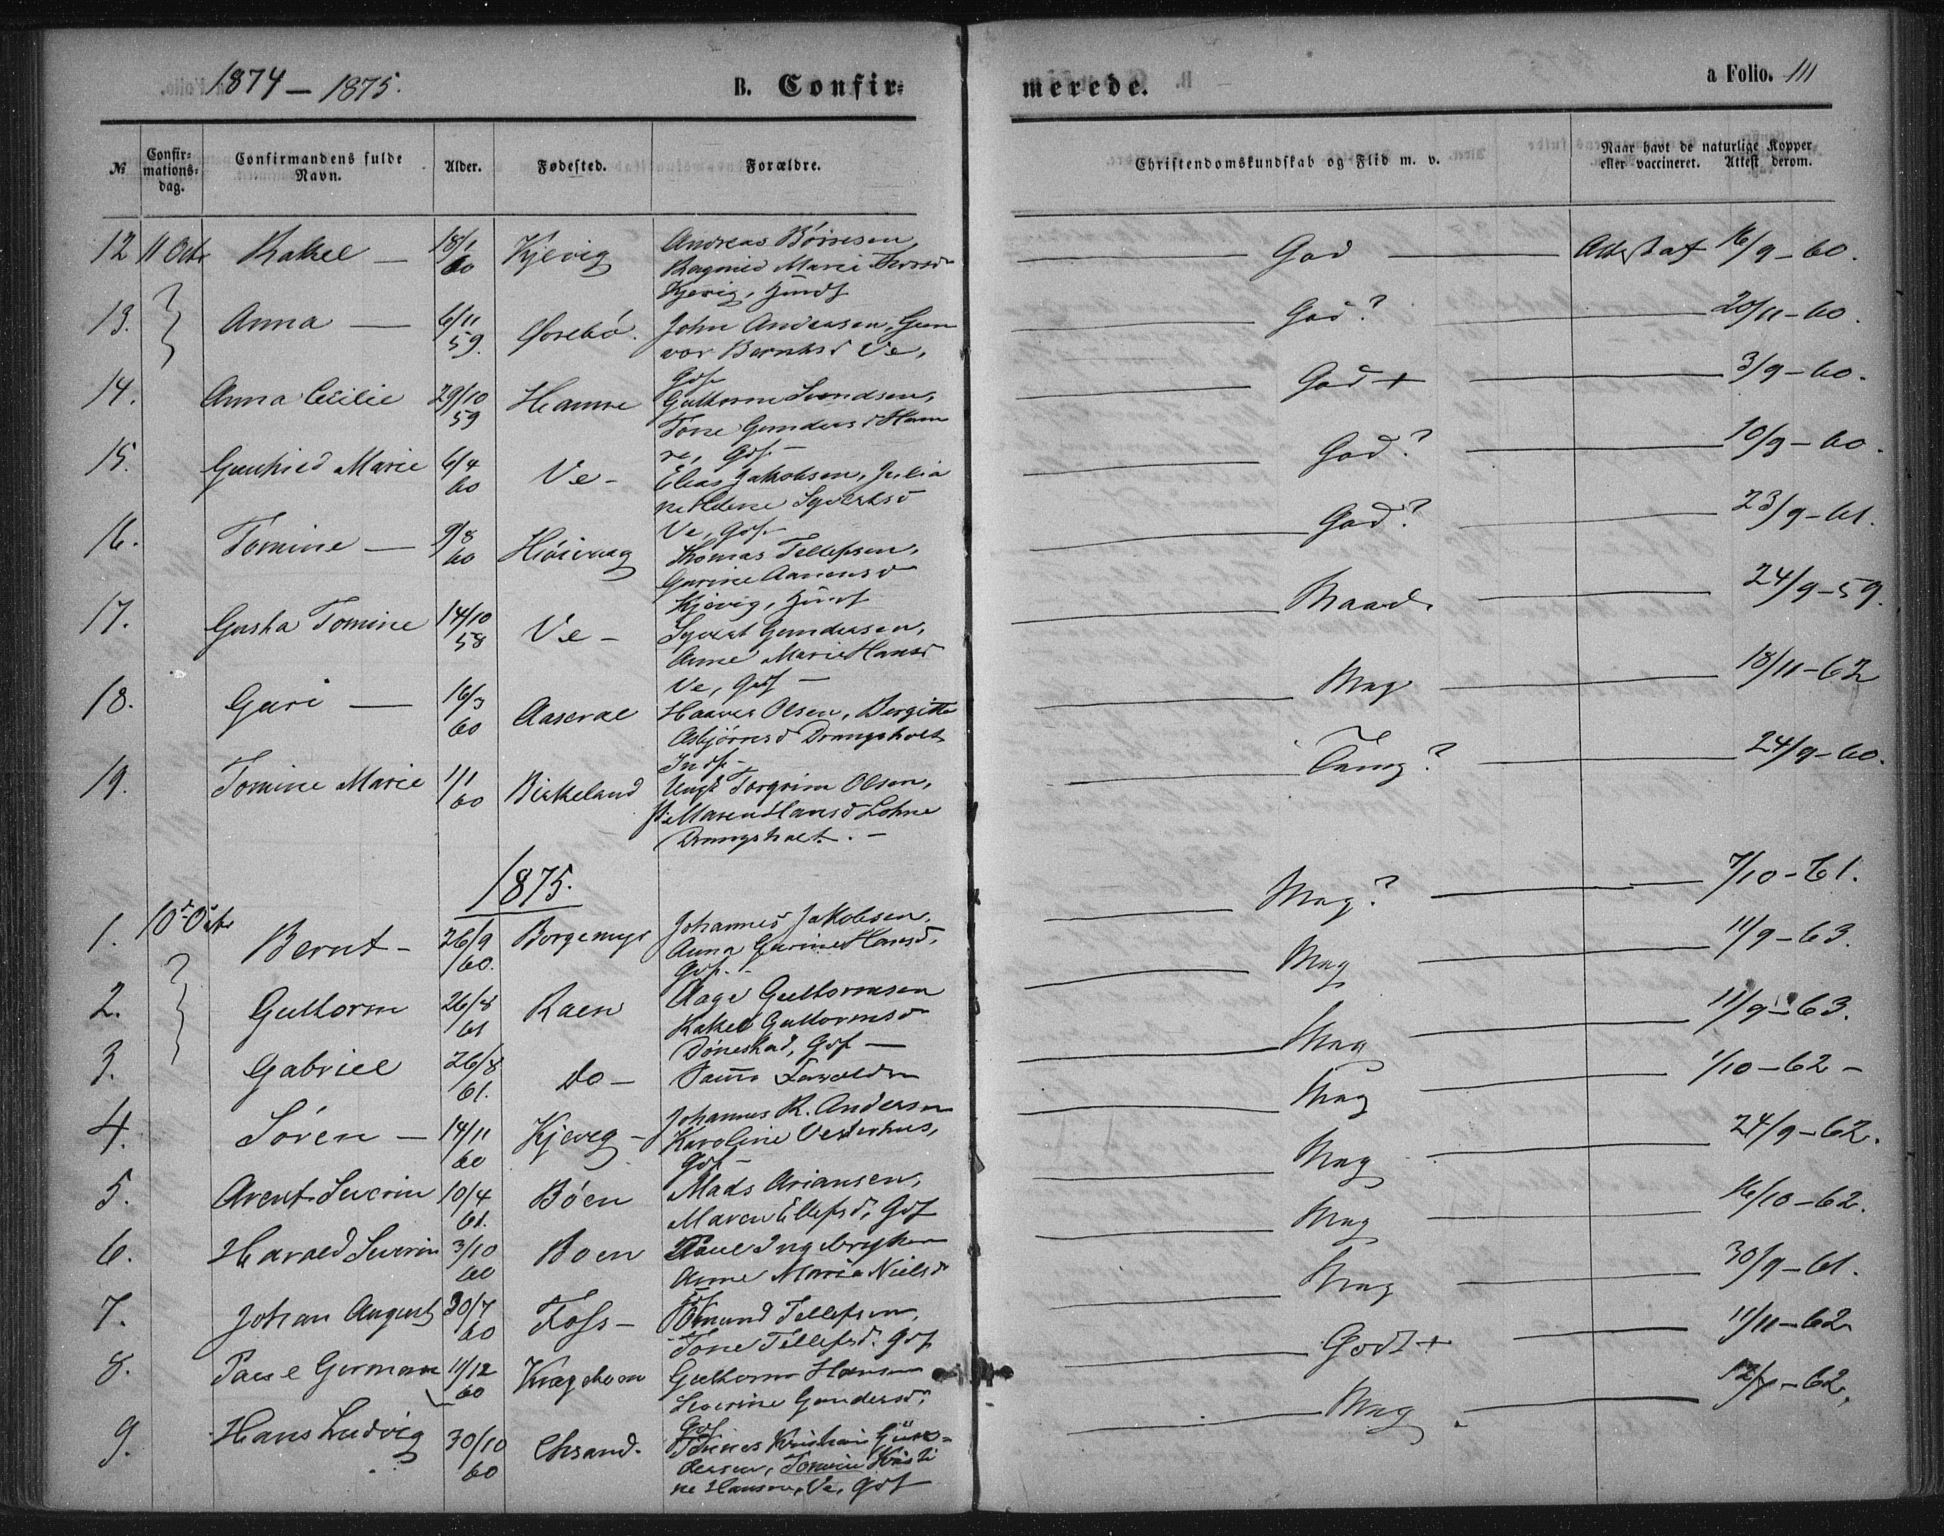 1874 – 1875.
B. Confir-
merede.
a Folio. 111
№
Confir-
mations-
dag.
Confirmandens fulde
Navn.
Alder.
Fødested.
Forældre.
Christendomskundskab og Flid m. v.
Naar havt de naturlige Kopper
eller vaccineret. Attest derom.
12 11 Octr Rakel — 18/1 60 Kjevig
Andreas Børresen,
Ragnild Marie
Kjevig,
God — 16/9 – 60.
13. Anna — 6/11 59.
John Andersen, Gun
vor Berntsd Ve,
Gdf
God? 20/11 – 60.
14. Anna Cecilie 29/10 59 Hamre
Guttorm Svendsen,
Tone Gundersd Ham
re, Gdf. –
God + 3/9 – 60.
15. Gunhild Marie 6/4 60 Ve –
Elias Jakobsen, Julia
ne Syvertsd
Ve, Gdf. –
God? 10/9 – 60.
16. Tomine — 9/8 60
Thomas Tellefsen,
Gurine Aanensd
Kjevig,
God? 23/9 – 61.
17. Gusta Tomine 14/10 58 Ve –
Syvert Gundersen,
Anne Marie Hansd
Ve, Gdf –
Maad. 24/9 – 59.
18. Guri — 16/3 60 Aaseral
Haaver Olsen, Bergitte
Asbjørnsd Drangsholt
Indf. –
Mag 18/11 – 62
19. Tomine Marie 1/1 60 Birkeland
Ungk Torgrim Olsen,
Maren Hansd Lohne
Drangsholt. –
Tamg? 24/9 – 60.
1875.
1. 10de Octr Bernt – 26/9 60. Borgemyr
Johannes Jakobsen,
Anna Gurine Hansd,
Gdf. –
Mag? 7/10 – 61.
2. Guttorm 26/8 61 Raen
Aage Guttormsen
Rakel Guttormsd
Dønestad, Gdf —
Mag 11/9 – 63.
3. Gabriel 26/8 61. do –
Samme Forældre
Mag 11/9 – 63.
4. Søren – 14/11 60 Kjevig –
Johannes R. Andersen
Karoline Vesterhus,
Gdf –
Mag 1/10 – 62 –
5. Arent Severin 10/4 61. Böen
Mads Ariansen,
Maren Ellefsd, Gdf
Mag 24/9 – 62.
6. Harald Severin 3/10 60 Boen
Paul Ingebrigtsen
Anne Marie Nielsd
Gdf
Mag 16/10 – 62.
7. Johan August 30/7 60 Foss –
Omund Tellefsen,
Tone Tellefsd. Gdf
Mag 30/9 – 61.
8. Paul German 11/12 60 Kragebom
Guttorm Hansen
Severine Gundersd,
Gdf
Godt + 11/11 – 62
9. Hans Ludvig 30/10 60 Chrsand.
Tønnes Kristian Gun-
dersen, Tomine Kristi
ne Hansen, Ve, Gdf
Mag. – 62,